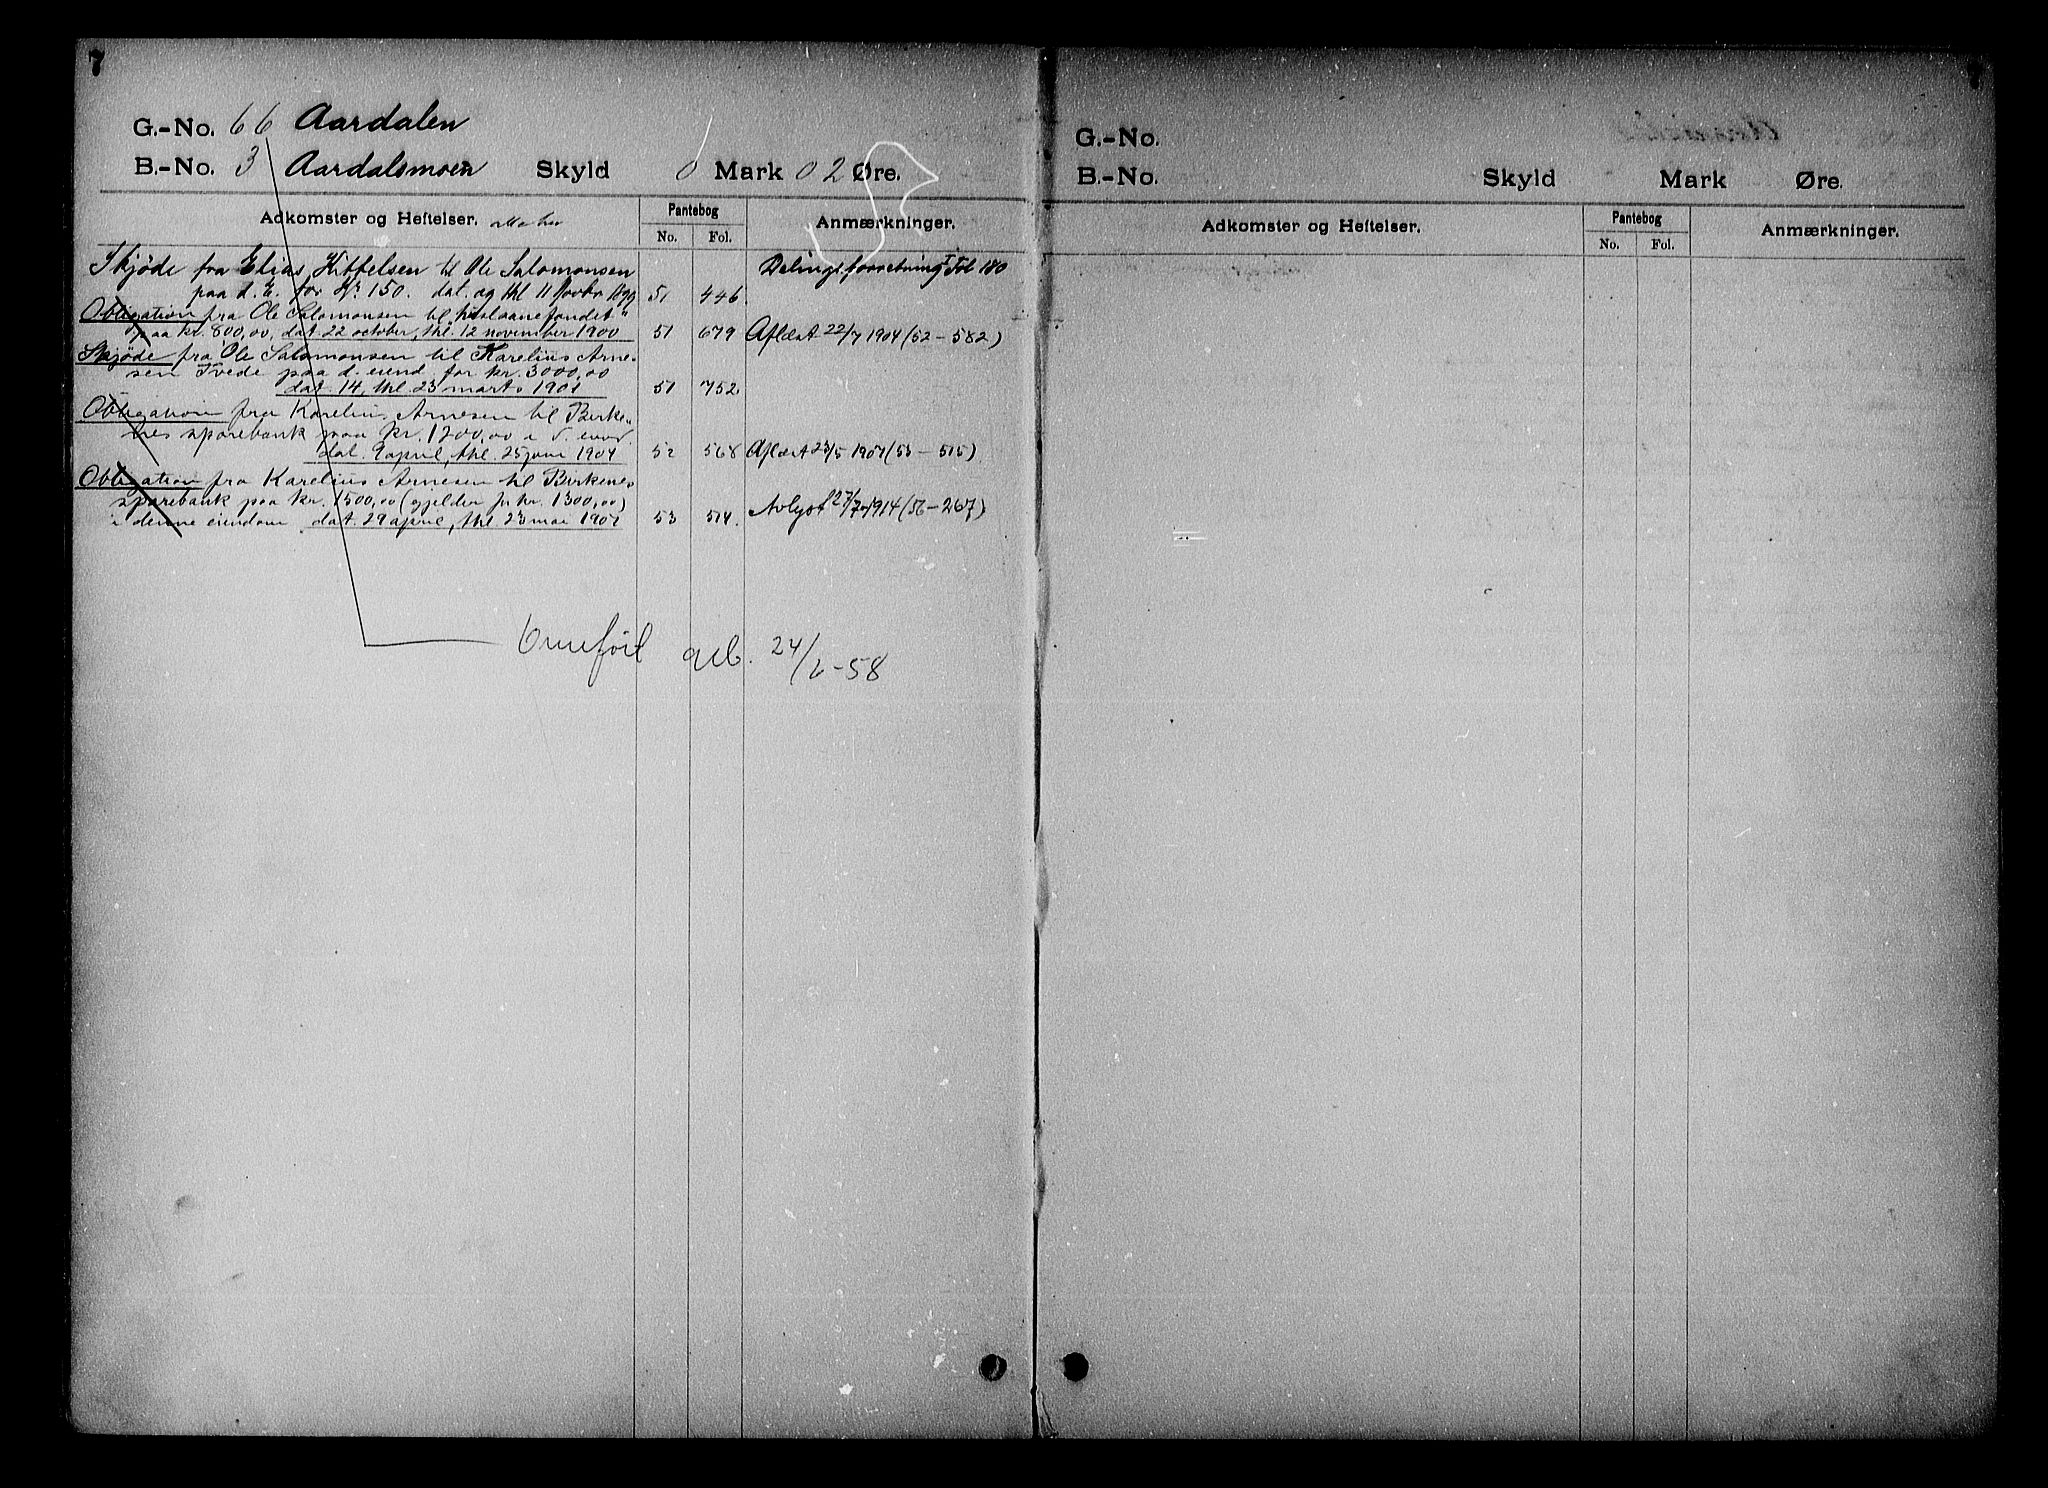 7
G.-No. 66 Aardalen
B.-No. 3 Aardalsmoen Skyld 0 Mark 02 Øre.
Adkomster og Heftelser. Pantebog No. Fol. Anmærkninger.
Skjøde fra Elias Kittelsen til Ole Salomonsen Delingsforretning I Fol 180
paa d. E. for Kr 150. dat. og thl 11 Novbr 1899 51 446.
Obligation fra Ole Salomonsen til "huslaanefondet"
paa kr. 800,00, dat. 22 october, thl. 12 november 1900 51 679 Aflæst 22/7 1904 (52-582)
Skjøde fra Ole Salomonsen til Karelius Arne-
sen Tvede paa d. eiend. for kr. 3000,00
dat. 14, thl. 23 marts 1901 51 752
Obligation fra Karelius Arnesen til Birke-
nes sparebank paa kr. 1200,00 i d. eiend.
dat. 9 april, thl. 25 juni 1904 52 568 Aflæst 23/5 1907 (53-515)
Obligation fra Karelius Arnesen til Birkenes
sparebank paa kr. 1500,00 (gjelder for kr. 1300,00)
i denne eiendom dat. 29 april, thl. 23 mai 1907 53 514. Avlyst 27/7 1914 (56-267)
24/6-58
7
G.-No.
B.-No. Skyld Mark Øre.
Adkomster og Heftelser. Pantebog No. Fol. Anmærkninger.